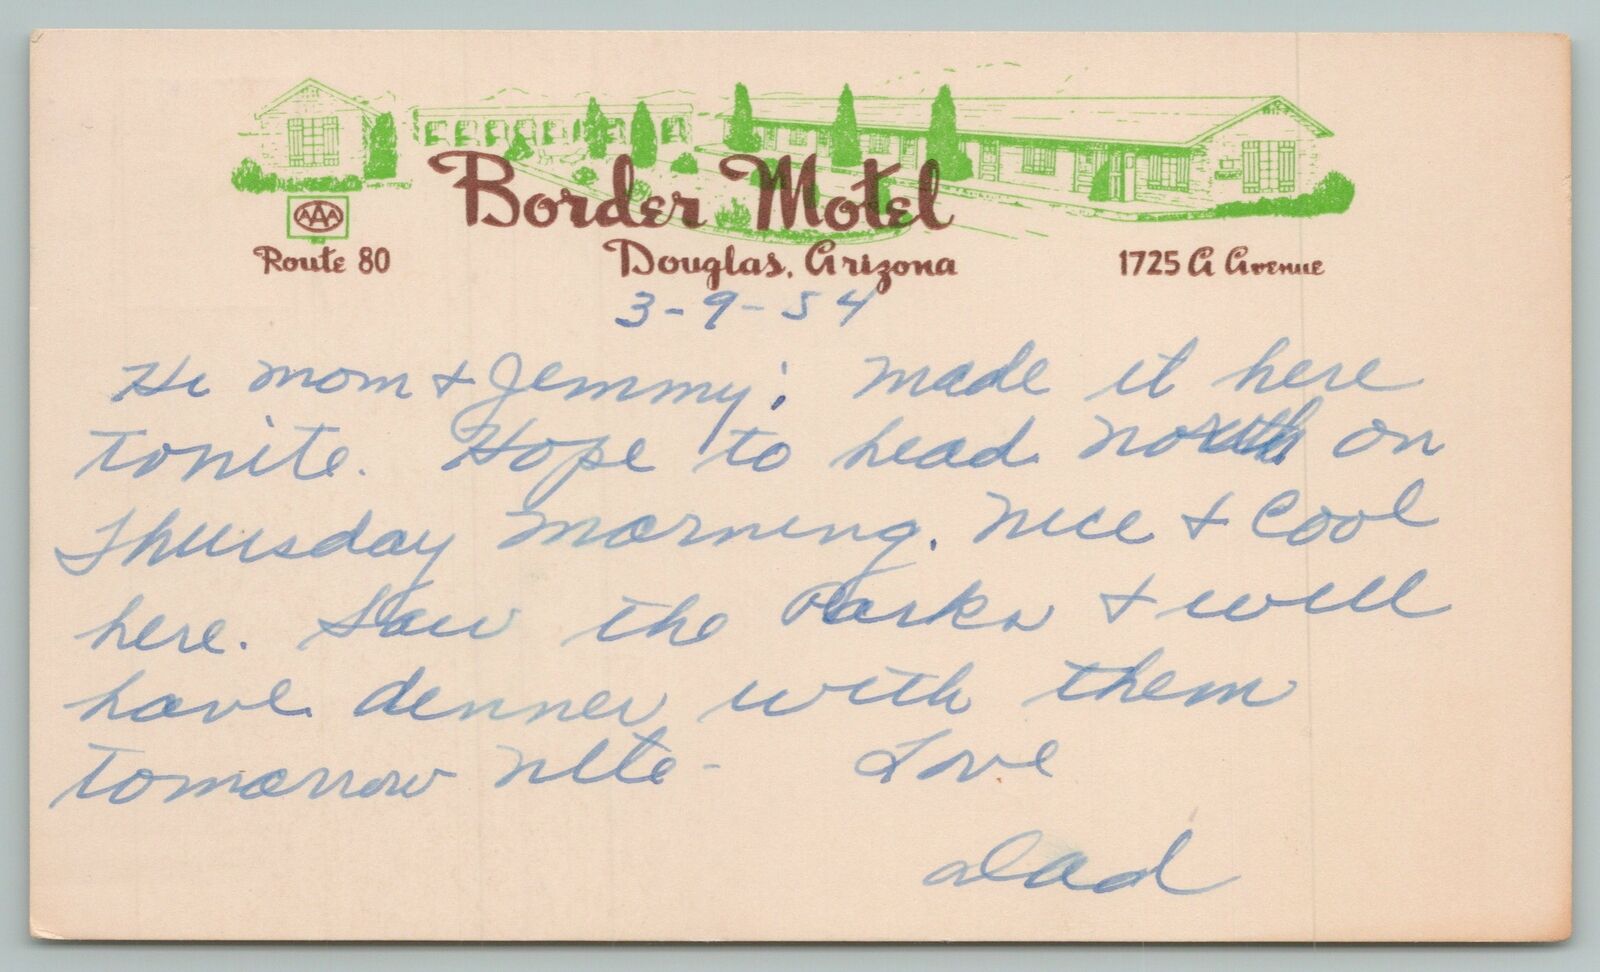 Border Motel
AAA
Route 80
Douglas, Arizona
1725 A Avenue
3-9-54
Hi Mom & Jemmy: Made it here
tonite. Hope to head north on
Thursday morning. Nice & Cool
here. Saw the Parks & will
have dinner with them
tomorrow nite - Love
Dad